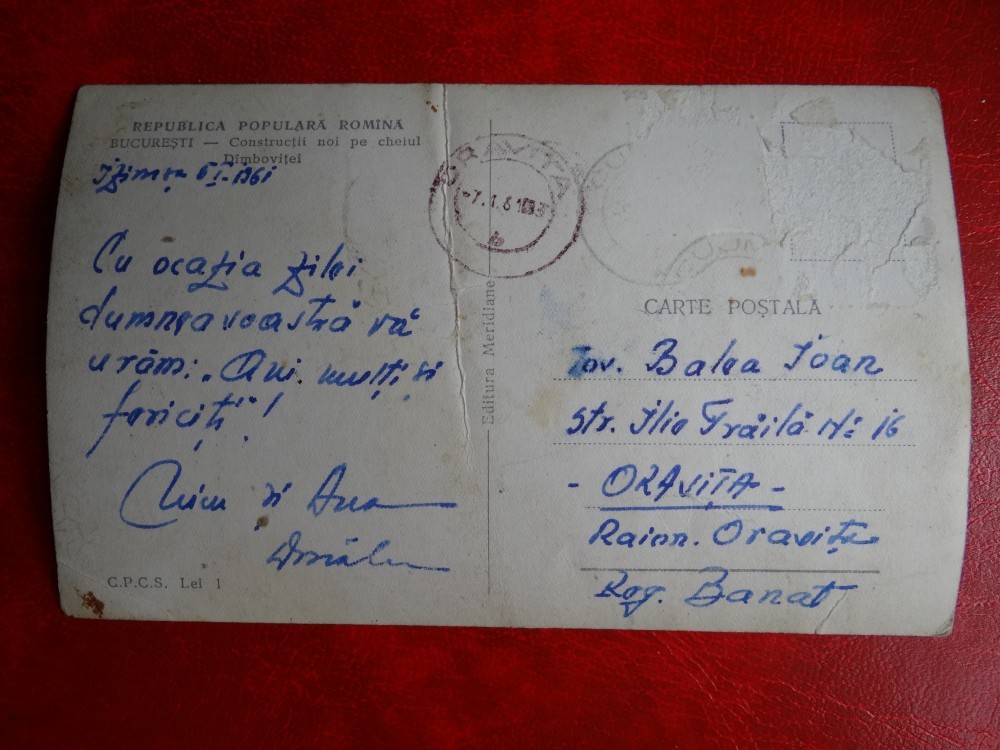 REPUBLICA POPULARĂ ROMÎNĂ
BUCUREȘTI — Construcții noi pe cheiul
Dîmboviței
6 I-1961
Cu ocazia zilei
dumneavoastră vă
urăm: „Ani mulți și
fericiți"!
și Ana
C.P.C.S. Lei 1
Editura Meridiane
ORAVIȚA
-7.1.61
CARTE POȘTALĂ
Tov. Balea Ioan
Str. Ilie Trăilă Nº 16
- ORAVIȚA -
Raion. Oravița
Reg. Banat